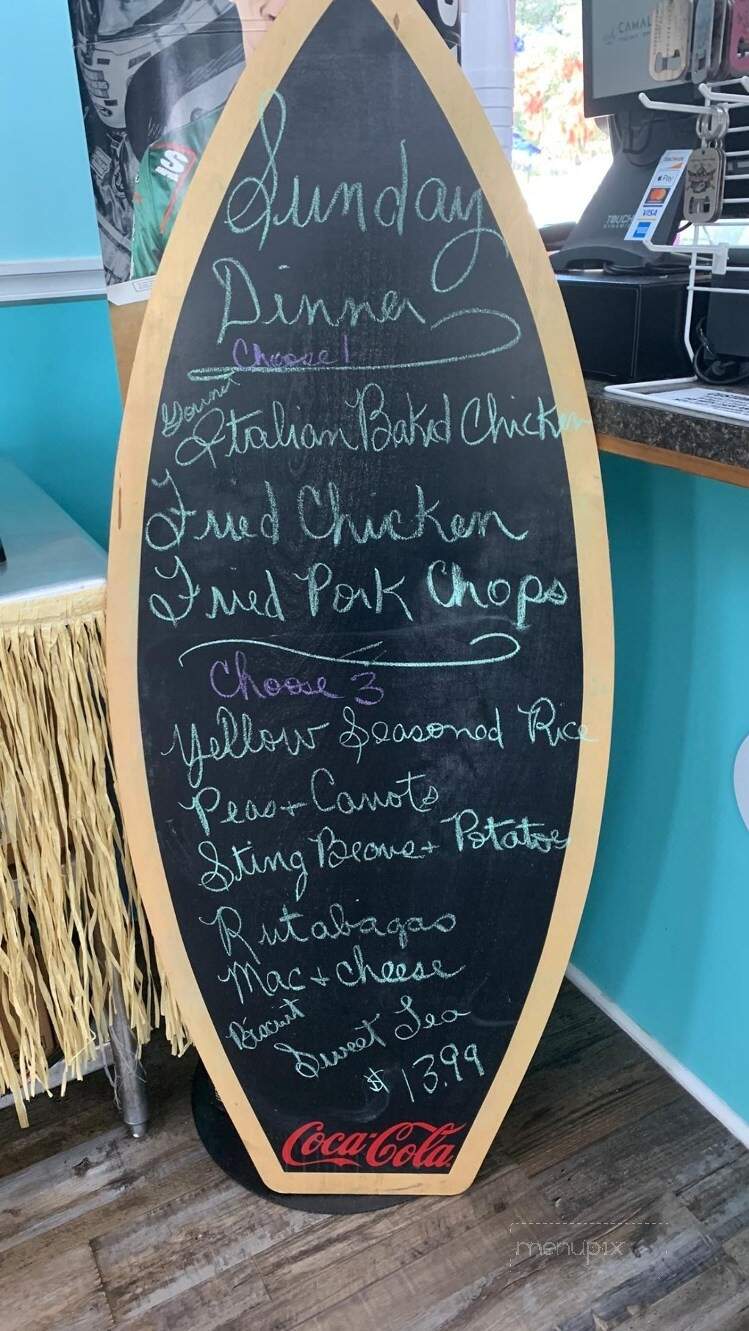 Sunday
Dinner
Choose 1
Italian Baked Chicken
Fried Chicken
Fried Pork Chops
Choose 3
Yellow Seasoned Rice
Peas + Carrots
String Beans + Potatoes
Rutabagas
Mac + cheese
Biscuit
Sweet Tea
$13.99
Coca-Cola
VISA
menupix